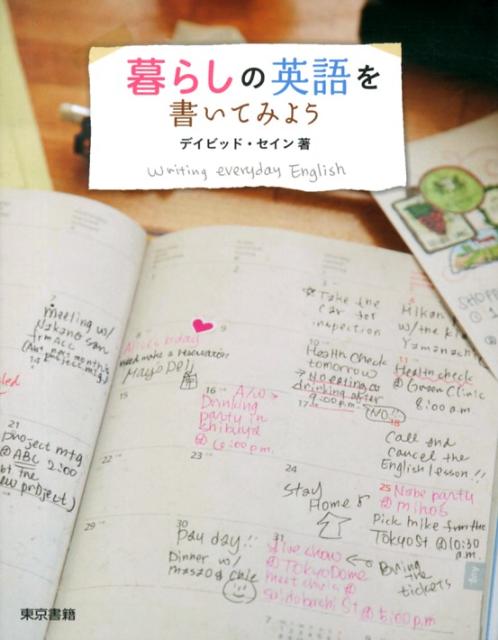 暮らしの英語を
書いてみよう
デイビッド・セイン 著
Writing everyday English
meeting w/
Nakano san
14
21
project mtg
@ ABC 2:00
new project)
8
9
need make a reservation
Mayo Deli
15
16
Drinking
party in
Shibuya
@ 6:00 p.m.
22
23
29
30
Pay day!!
Dinner w/
masao & chie
10
☆Take the
car for
inspection
Health check
tomorrow
→ No eating or
drinking after
9:00 p.m.
17
(NO!!)
24
stay
Home
31
Live show
@ TokyoDome
meet chie @
Suidobashi St @ 5:00 p.m.
Bring
the
tickets
Mikan
w/ the k
Yamanashi
11
Health check
@ Green Clinic
8:00 a.m.
18
Call and
Cancel the
English lesson!!
25
Nabe party
@ miho's
Pick mike from the
Tokyo St @ 10:30
a.m.
Aug
7
SHOPP
東京書籍